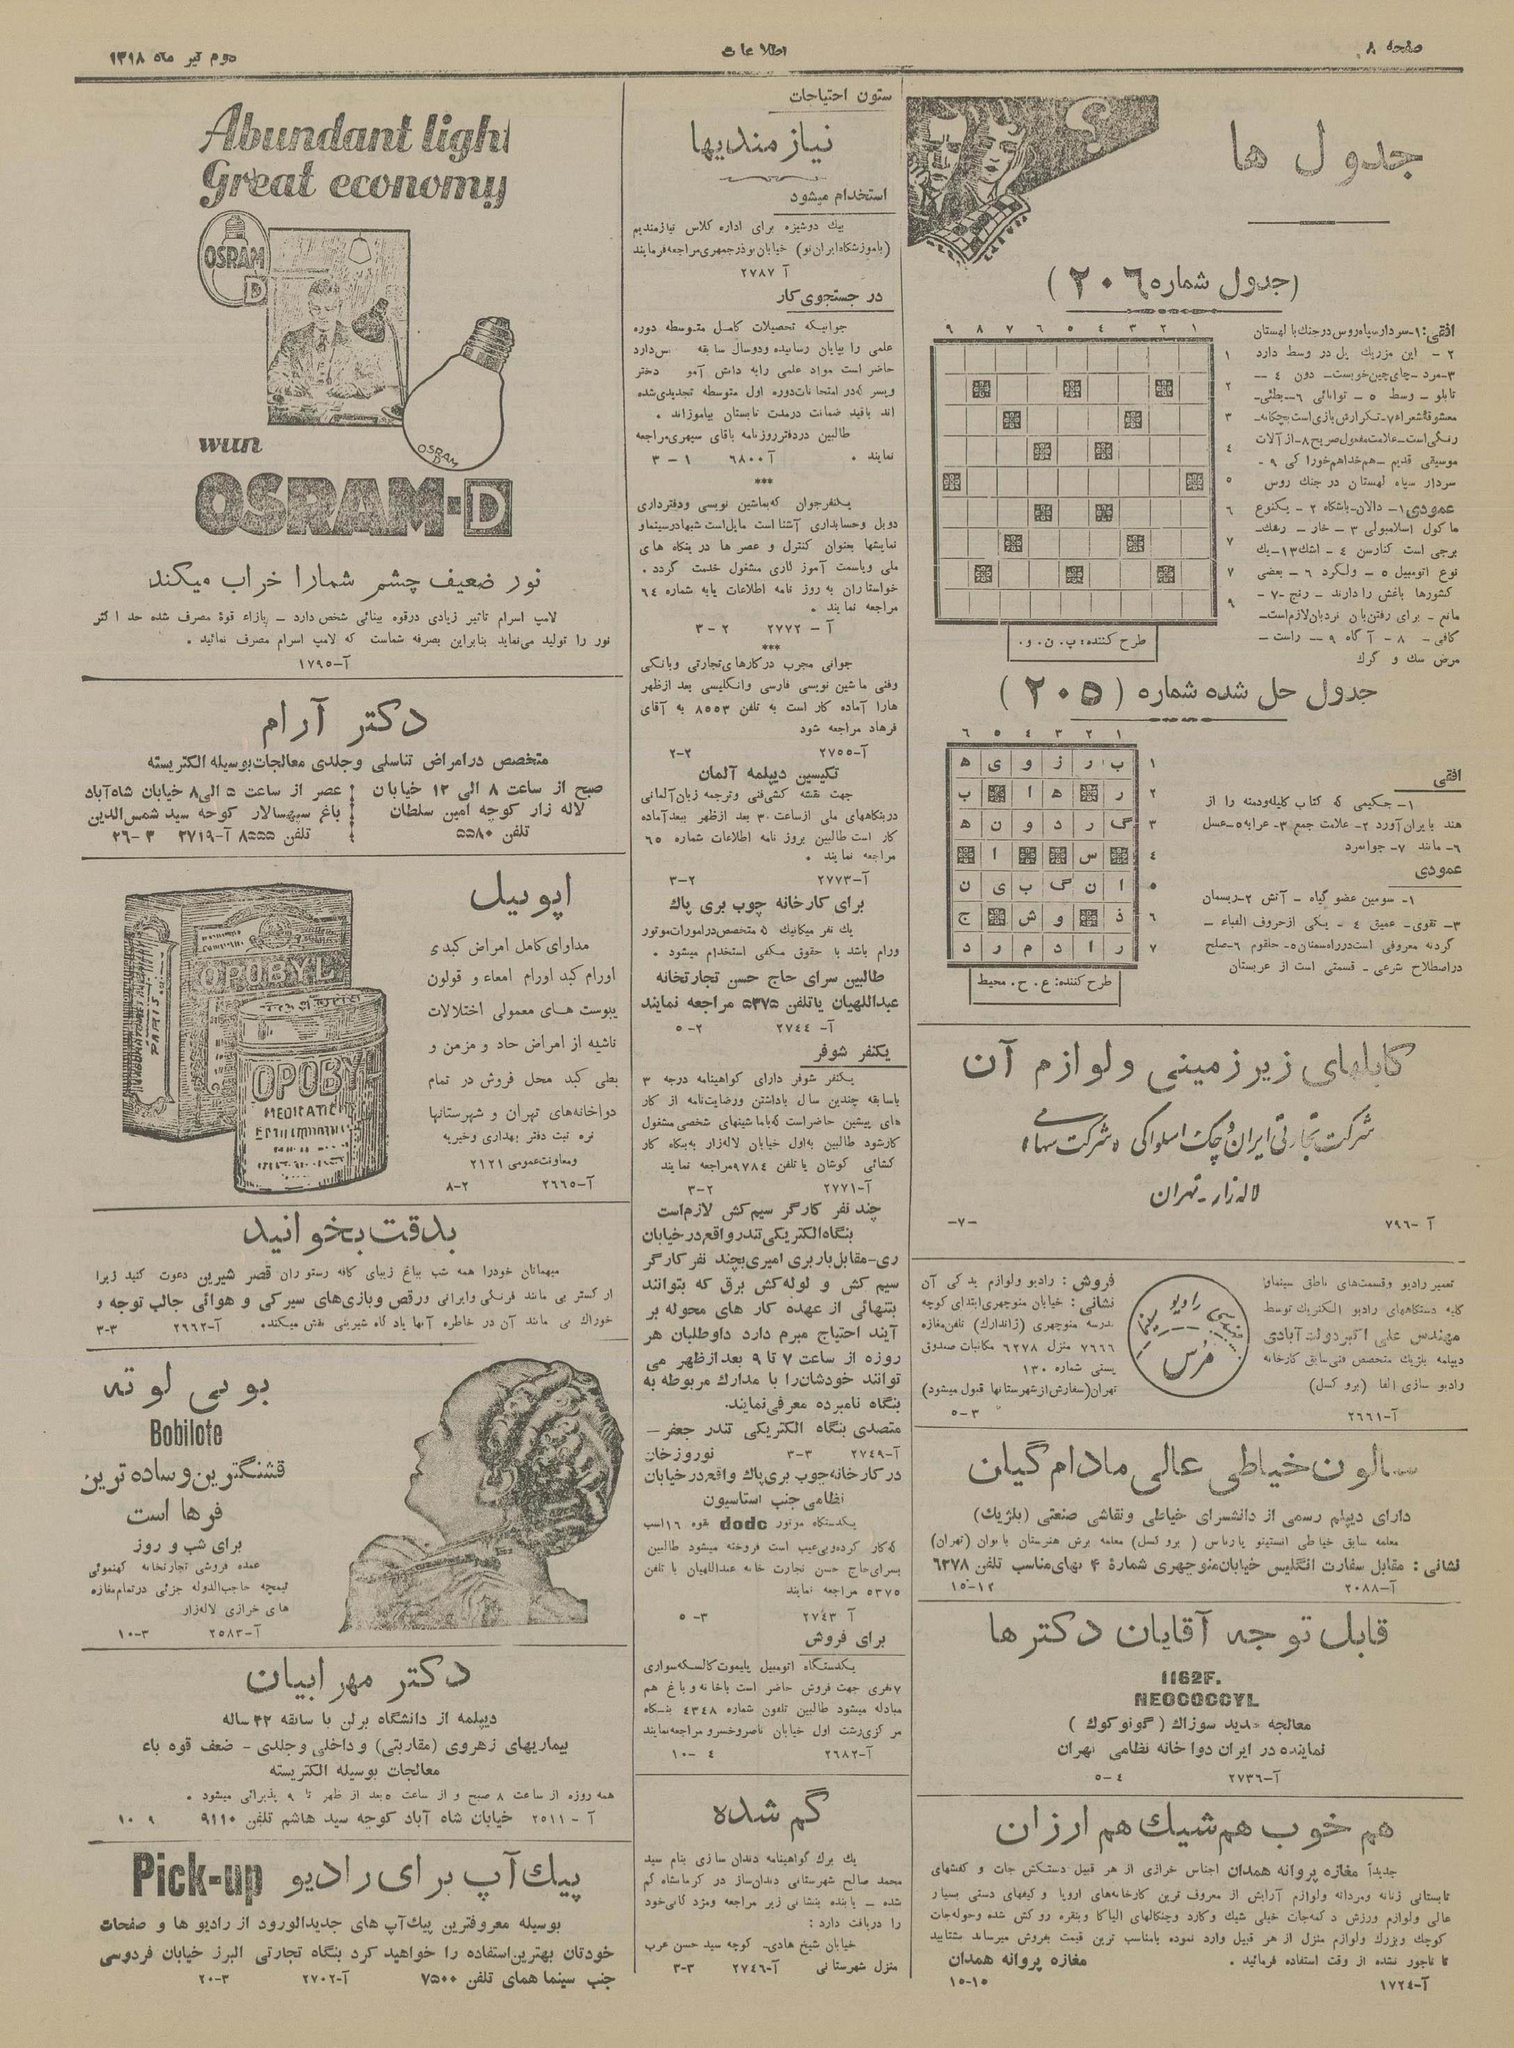 صفحه ۸
اطلاعات
دوم تیر ماه ۱۳۱۸
جدول ها
(جدول شماره ۲۰۶)
۹ ۸ ۷ ۶ ۵ ٤ ۳ ۲ ۱
افقی: ۱- سردار سپاه روس در جنك با لهستان
۲ - این مرریك یل در وسط دارد
۳- مرد - چای چین خوبست - دون ٤ -
تابلو - وسط ۵ - توانائی ۶ - بطئی -
معشوقهٔ شعراء ۷- تکرارش بازی است بچگانه -
رنگی است - علامت مفعول صریح ۸- از آلات
موسیقی قدیم - هم خدا هم خوراکی ۹ -
سردار سپاه لهستان در جنك روس
عمودی ۱ - دالان - باشگاه ۲ - یکنوع
ماکول اسلامبولی ۳ - خار - رفیك -
برجی است کنار سن ٤ - اشك ۱۳ - یك
نوع اتومبیل ۵ - ولگرد ۶ - بعضی
کشورها باغش را دارند - رنج ۷ -
مانع - برای رفتن بان نردبان لازم است -
کافی - ۸ - آگاه ۹ - راست -
مرض سك و گرك
طرح کننده: پ. ن. و.
جدول حل شده شماره (۲۰۵)
۶ ۵ ٤ ۳ ۲ ۱
ب ر ز و ی ه
ر ه ا ب
گ ر د و ن ه
س ا
ا ن گ ب ی ن
ذ و ش ج
ر ا د م ر د
طرح کننده: ع. ح. محیط
افقی
۱- حکیمی که کتاب کلیله ودمنه را از
هند بایران آورد ۲- علامت جمع ۳- عرابه ۵- عسل
۶- مانند ۷- جوانمرد
عمودی
۱- سومین عضو گیاه - آتش ۲- ریسمان
۳- تقوی - عمیق ٤ - یکی از حروف الفباء -
گردنه معروفی است در راه سمنان ۵- حلقوم ۶- صلح
در اصطلاح شرعی - قسمتی است از عربستان
کابلهای زیرزمینی ولوازم آن
شرکت تجارتی ایران و چک اسلواکی «شرکت سهامی»
لاله زار - تهران
آ - ۷۹۶ -۷-
تعمیر رادیو وقسمت‌های ناطق سینما و
کلیه دستگاههای رادیو الکتریك توسط
مهندس علی اکبر دولت آبادی
دیپلمه بلژیك متخصص فنی سابق کارخانه
رادیو سازی الفا (بروکسل)
آ-۲۶۶۱
مهندسی رادیو سینما
مُرس
فروش: رادیو ولوازم یدکی آن
نشانی: خیابان منوچهری ابتدای کوچه
مدرسه منوچهری (ژاندارك) تلفن مغازه
۷۶۶۶ منزل ۶۲۷۸ مکاتبات صندوق
پستی شماره ۱۳۰
تهران (سفارش از شهرستانها قبول میشود)
۵-۳
سالون خیاطی عالی مادام گیان
دارای دیپلم رسمی از دانشسرای خیاطی ونقاشی صنعتی (بلژیك)
معلمه سابق خیاطی انستیتو پاریاس (بروکسل) معلمه برش هنرستان بانوان (تهران)
نشانی: مقابل سفارت انگلیس خیابان منوچهری شمارهٔ ۴ بهای مناسب تلفن ۶۲۷۸
آ-۲۰۸۸ ۱۵-۱۲
قابل توجه آقایان دکترها
1162F.
NEOCOCCYL
معالجه جدید سوزاك (گونوکوك)
نماینده در ایران دواخانه نظامی تهران
آ-۲۷۳۶ ۵-٤
هم خوب هم شیك هم ارزان
جدیداً مغازه پروانه همدان اجناس خرازی از هر قبیل دستکش جات و کفشهای
تابستانی زنانه ومردانه ولوازم آرایش از معروف ترین کارخانه‌های اروپا و کیفهای دستی بسیار
عالی ولوازم ورزش دکمه‌جات خیلی شیك وکارد وچنگالهای الپاکا وبنقره روکش شده وحوله‌جات
کوچك وبزرك ولوازم منزل از هر قبیل وارد نموده بامناسب ترین قیمت بفروش میرساند بشتابید
تا تاجور نشده از وقت استفاده فرمائید. مغازه پروانه همدان
آ-۱۷۲٤ ۱۵-۱۵
ستون احتیاجات
نیازمندیها
استخدام میشود
بیك دوشیزه برای اداره کلاس نیازمندیم
(باموزشگاه ایران نو) خیابان بوذرجمهری مراجعه فرمایند
آ ۲۷۸۷
در جستجوی کار
جوانیکه تحصیلات کامل متوسطه دوره
علمی را بپایان رسانیده ودوسال سابقه دارد
حاضر است مواد علمی را به دانش آموز دختر
وپسر که در امتحانات دوره اول متوسطه تجدیدی شده
اند باقید ضمانت درمدت تابستان بیاموزاند.
طالبین دردفتر روزنامه باقای سپهری مراجعه
نمایند. آ-۶۸۰۰ ۳-۱
***
یکنفر جوان که بماشین نویسی ودفترداری
دوبل وحسابداری آشنا است مایل است شبها در سینما و
نمایشها بعنوان کنترل و عصرها در بنگاه های
ملی وبا سمت آموزگاری مشغول خدمت گردد.
خواستاران به روزنامه اطلاعات پایه شماره ۶٤
مراجعه نمایند.
آ-۲۷۷۲ ۳-۲
***
جوانی مجرب درکارهای تجارتی وبانکی
وفنی ماشین نویسی فارسی وانگلیسی بعد ازظهر
هارا آماده کار است به تلفن ۸۵۵۳ به آقای
فرهاد مراجعه شود
آ-۲۷۵۵ ۲-۲
تکیسین دیپلمه آلمان
جهت نقشه کشی فنی وترجمه زبان آلمانی
دربنگاههای ملی ازساعت ۳۰ بعد ازظهر ببعد آماده
کار است طالبین بروزنامه اطلاعات شماره ۶۵
مراجعه نمایند.
آ-۲۷۷۳ ۳-۲
برای کارخانه چوب بری پاك
یك نفر میکانیك که متخصص درامورات موتور
ورام باشد با حقوق مکفی استخدام میشود.
طالبین سرای حاج حسن تجارتخانه
عبداللهیان یاتلفن ۵۳۷۵ مراجعه نمایند
آ-۲۷٤٤ ۵-۲
یکنفر شوفر
یکنفر شوفر دارای گواهینامه درجه ۳
باسابقه چندین سال باداشتن ورضایت‌نامه از کار
های پیشین حاضر است که باماشینهای شخصی مشغول
کارشود طالبین به اول خیابان لاله‌زار به بنگاه کار
گشائی کوشان یاتلفن ۹۷۸٤ مراجعه نمایند
آ-۲۷۷۱ ۳-۲
چند نفر کارگر سیم کش لازم است
بنگاه الکتریکی تندر واقع درخیابان
ری - مقابل باربری امیری بچند نفر کارگر
سیم کش و لوله کش برق که بتوانند
بتنهائی از عهده کار های محوله بر
آیند احتیاج مبرم دارد داوطلبان هر
روزه از ساعت ۷ تا ۹ بعد ازظهر می
توانند خودشان‌را با مدارك مربوطه به
بنگاه نامبرده معرفی نمایند.
متصدی بنگاه الکتریکی تندر جعفر -
آ-۲۷٤۹ ۳-۳ نوروزخان
در کارخانه چوب بری پاك واقع در خیابان
نظامی جنب استاسیون
یکدستگاه موتور dodc بقوه ۱۶ اسب
که کار کرده وبی‌عیب است فروخته میشود طالبین
بسرای حاج حسن تجارت خانه عبداللهیان با تلفن
۵۳۷۵ مراجعه نمایند
آ ۲۷٤۳ ۵-۳
برای فروش
یکدستگاه اتومبیل پلیموت کالسکه سواری
۷ نفری جهت فروش حاضر است باخانه و باغ هم
مبادله میشود طالبین تلفون شماره ٤۳٤۸ بنگاه
مرکزی رشت اول خیابان ناصرخسرو مراجعه نمایند
آ-۲۶۸۲ ۱۰-٤
گم شده
یك برك گواهینامه دندان سازی بنام سید
محمد صالح شهرستانی دندان‌ساز در کرمانشاه گم
شده - یابنده بنشانی زیر مراجعه ومژدگانی خود
را دریافت دارد:
خیابان شیخ هادی - کوچه سید حسن عرب
منزل شهرستانی آ-۲۷٤۶ ۳-۳
Abundant light
Great economy
OSRAM
D
OSRAM
D
wun
OSRAM-D
نور ضعیف چشم شمارا خراب میکند
لامپ اسرام تاثیر زیادی درقوه بینائی شخص دارد - بازاء قوهٔ مصرف شده حد اکثر
نور را تولید می‌نماید بنابراین بصرفه شماست که لامپ اسرام مصرف نمائید.
آ-۱۷۹۵
دکتر آرام
متخصص درامراض تناسلی وجلدی معالجات بوسیله الکتریسته
صبح از ساعت ۸ الی ۱۲ خیابان
لاله زار کوچه امین سلطان
تلفن ۵۵۸۰
عصر از ساعت ۵ الی ۸ خیابان شاه‌آباد
باغ سپهسالار کوچه سید شمس‌الدین
تلفن ۸۵۵۵ آ-۲۷۱۹ ۲۶-۳
اپوبیل
مداوای کامل امراض کبدی
اورام کبد اورام امعاء و قولون
یبوست های معمولی اختلالات
ناشیه از امراض حاد و مزمن و
بطی کبد محل فروش در تمام
دواخانه‌های تهران و شهرستانها
نمره ثبت دفتر بهداری وخیریه
ومعاونت عمومی ۲۱۲۱
آ-۲۶۶۵ ۸-۲
OPOBYL
OPOBY
بدقت بخوانید
میهمانان خودرا همه شب بباغ زیبای کافه رستوران قصر شیرین دعوت کنید زیرا
ارکستر بی مانند فرنگی وایرانی ورقص وبازی‌های سیرکی و هوائی جالب توجه و
خوراك بی مانند آن در خاطره آنها یادگاه شیرینی نقش میکند. آ-۲۶۶۲ ۳-۳
بوبی لوته
Bobilote
قشنگترین وساده ترین
فرها است
برای شب و روز
عمده فروشی تجارتخانه کهنموئی
تیمچه حاجب‌الدوله جزئی درتمام مغازه
های خرازی لاله‌زار
آ-۲۵۸۳ ۱۰-۳
دکتر مهرابیان
دیپلمه از دانشگاه برلن با سابقه ۲۲ ساله
بیماریهای زهروی (مقاربتی) و داخلی وجلدی - ضعف قوه باء
معالجات بوسیله الکتریسته
همه روزه از ساعت ۸ صبح و از ساعت ۵ بعد از ظهر تا ۹ پذیرائی میشود.
آ - ۲۵۱۱ خیابان شاه آباد کوچه سید هاشم تلفن ۹۱۱۰ ۹ ۱۰
پیك آپ برای رادیو Pick-up
بوسیله معروفترین پیك‌آپ های جدیدالورود از رادیو ها و صفحات
خودتان بهترین استفاده را خواهید کرد بنگاه تجارتی البرز خیابان فردوسی
جنب سینما همای تلفن ۷۵۰۰ آ-۲۷۰۲ ۲۰-۳